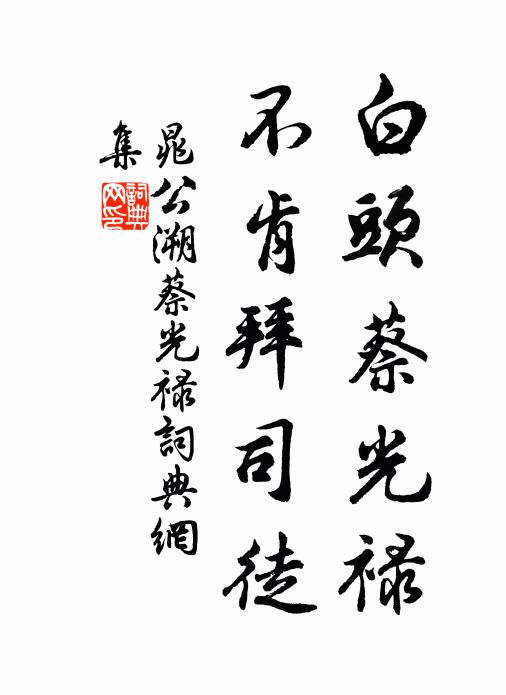 白頭蔡光祿
不肯拜司徒
晁公溯蔡光祿詞典網
集
詞典
网印